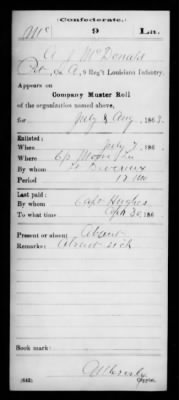 Confederate.
Mc 9 La.
A J McDonald
Pvt, Co. A, 9 Reg't Louisiana Infantry.
Appears on
Company Muster Roll
of the organization named above,
for July & Aug, 1863.
Enlisted:
When July 7, 186
Where Cp Moore La
By whom Lt Devereux
Period 12 Mo
Last paid:
By whom Capt Hughes
To what time Apr 30, 186
Present or absent Absent
Remarks: Absent sick
Book mark:
(642) Copyist.